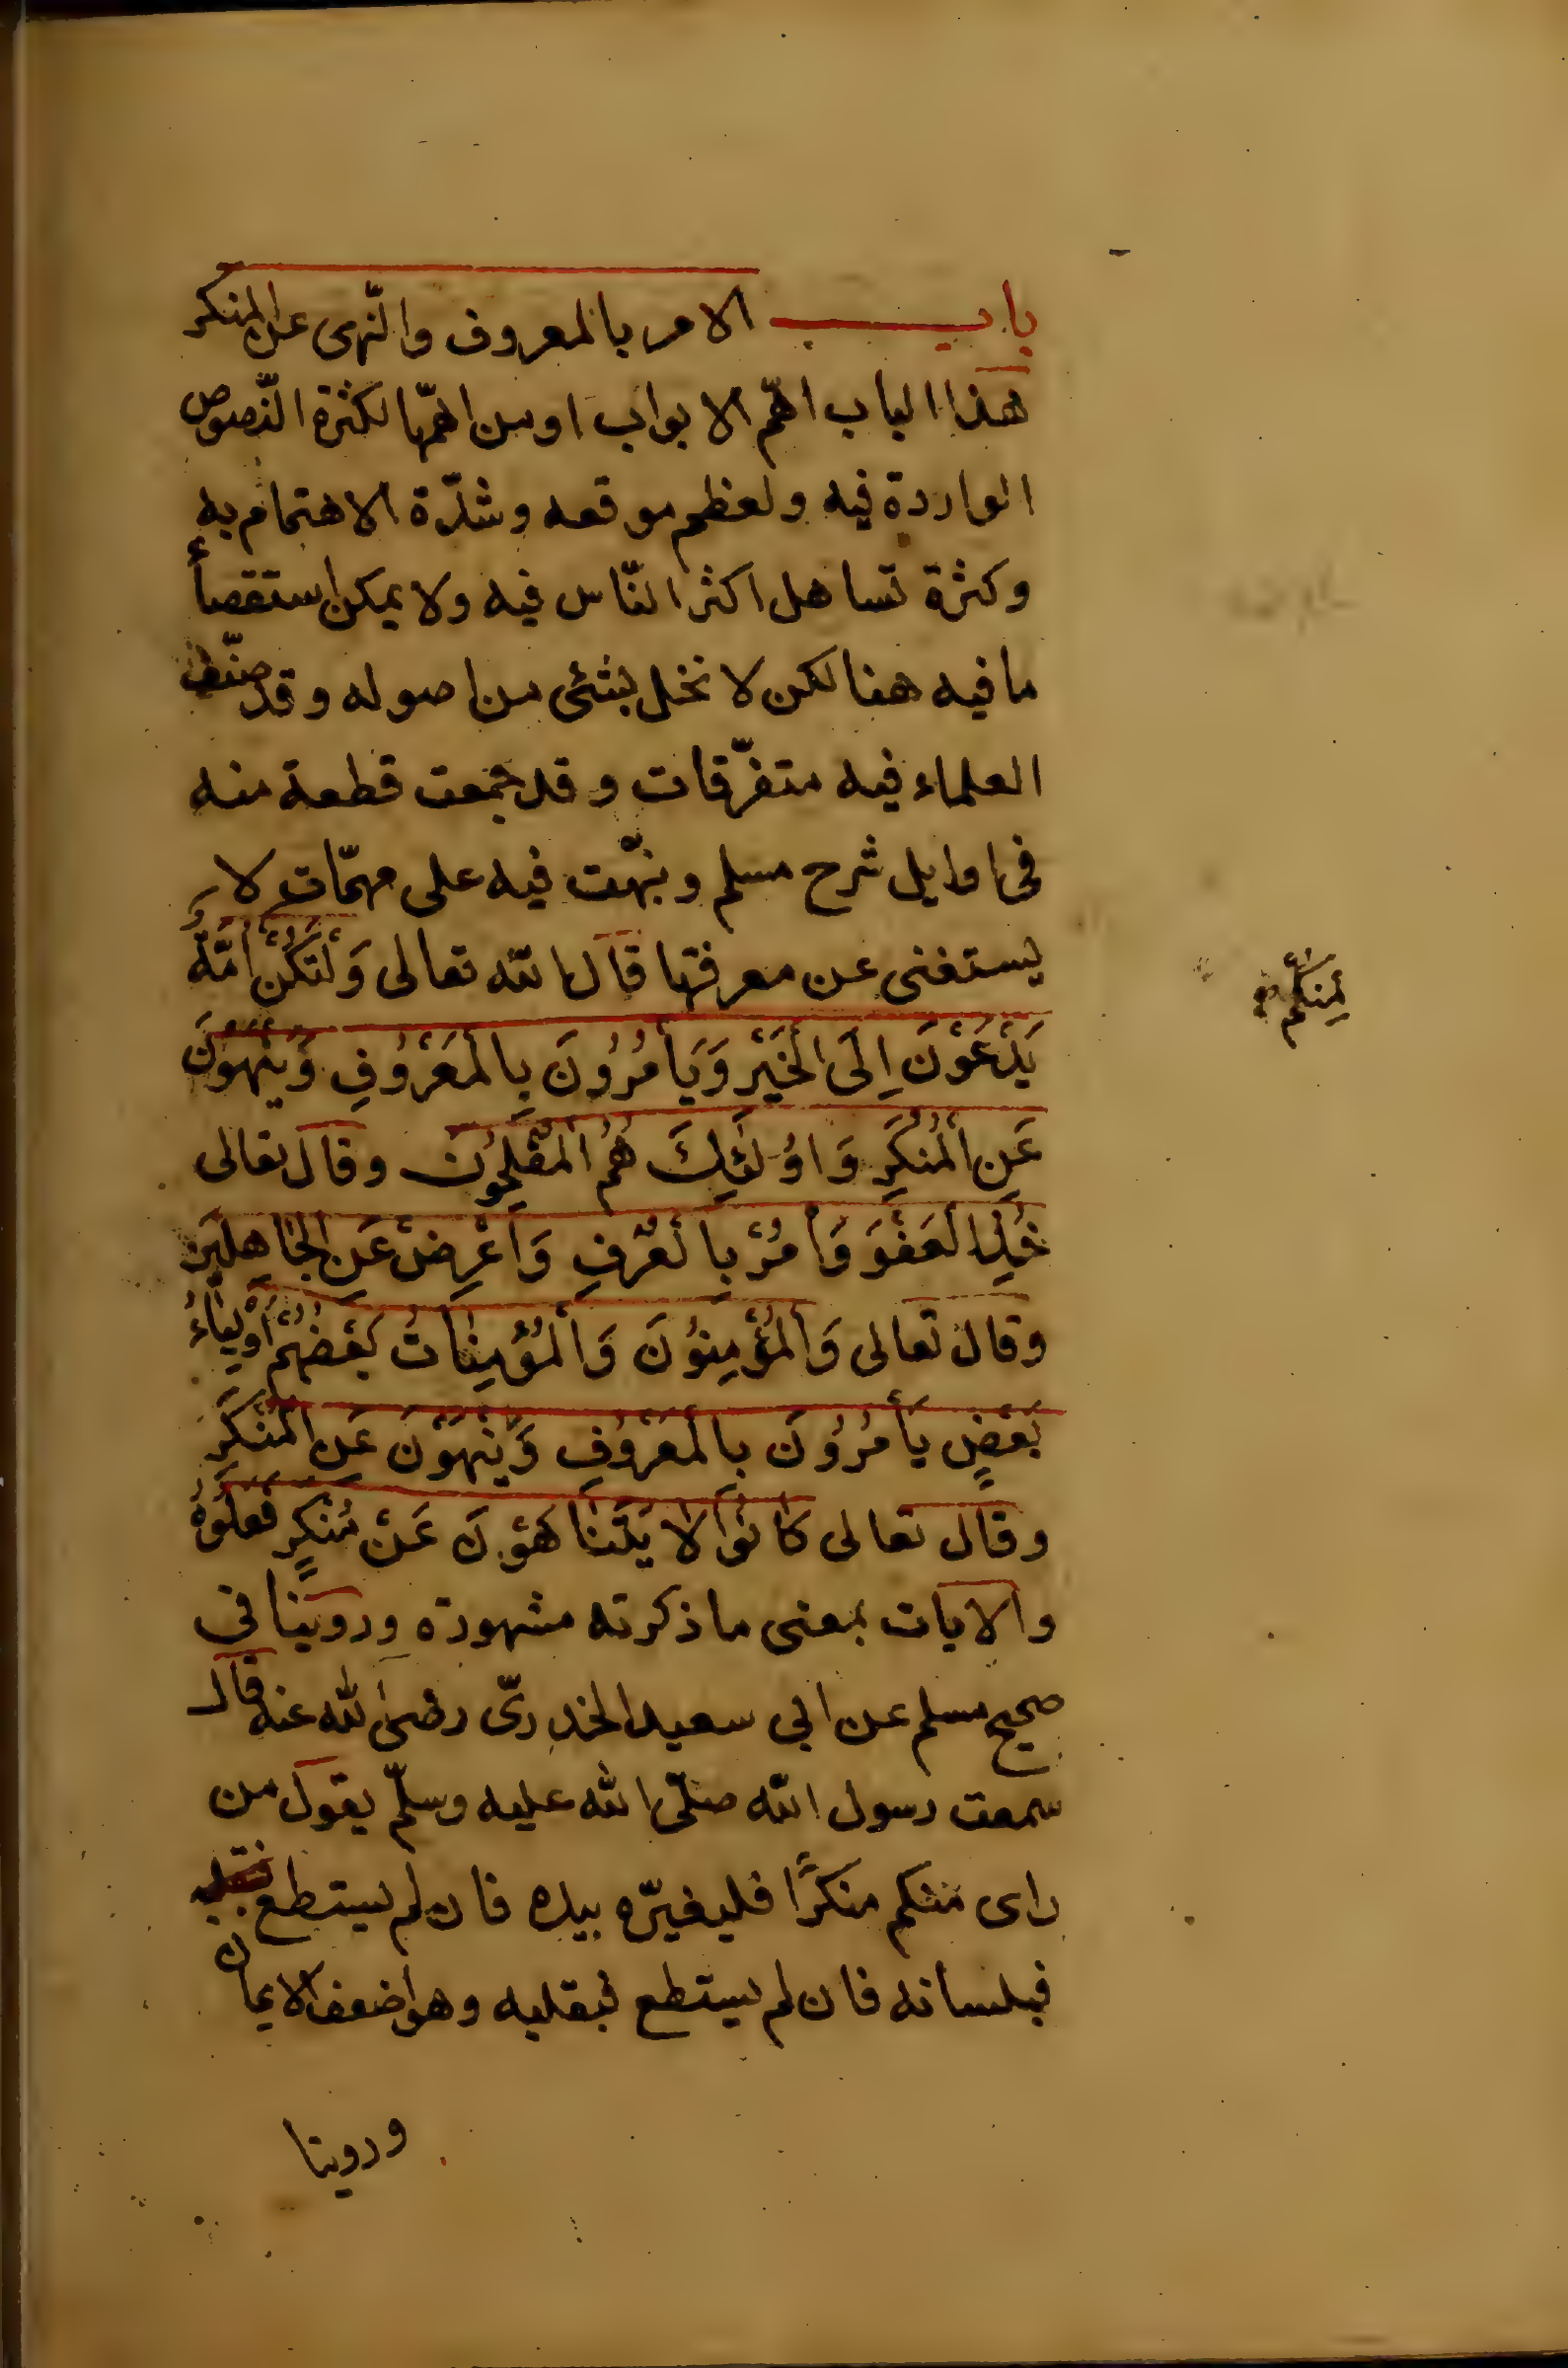 باب الامر بالمعروف والنّهى عن المنكر
هذا الباب اهّم الابواب او من اهمّها لكثرة النّصوص
الواردة فيه ولعظم موقعه وشدّة الاهتمام به
وكثرة تساهل اكثر النّاس فيه ولا يمكن استقصأء
ما فيه هنا لكن لا نخل بشئى من اصوله وقد صنّف
العلماء فيه متفرّقات وقد جمعت قطعة منه
فى اوايل شرح مسلم ونبّهت فيه على مهمّات لا
يستغنى عن معرفتها قال الله تعالى وَلْتَكُنْ اُمَّةٌ
مِنْكُمْ
يَدْعَوْنَ اِلَى الْخَيْرِ وَيَأمُرُونَ بِالْمَعْرُوفِ وَيَنْهَوْنَ
عَنِ الْمُنْكَرِ وَاوُلَئِكَ هُمُ الْمُفْلِحُونَ وقال تعالى
خُذِ الْعَفْوَ وَأمُرْ بِالْعُرْفِ وَاَعْرِضْ عَنِ الْجَاهِلِينَ
وقال تعالى وَالْمُؤْمِنُونَ وَالْمُؤْمِنَاتُ بَعْضُهُمْ اَوْلِيَاءُ
بَعْضٍ يَأمُرُونَ بِالْمَعْرُوفِ وَيَنْهَوْنَ عَنِ الْمُنْكَرِ
وقال تعالى كَانُوا لَا يَتَنَاهَوْنَ عَنْ مُنْكَرٍ فَعَلُوهُ
والايات بمعنى ما ذكرته مشهورة وروينا فى
صحيح مسلم عن ابى سعيد الخدرىّ رضى الله عنه قال
سمعت رسول الله صلّى الله عليه وسلّم يقول من
راى منكم منكرًا فليغيّره بيده فان لم يستطع
فبلسانه فان لم يستطع فبقلبه وهو اضعف الايمان
وروينا